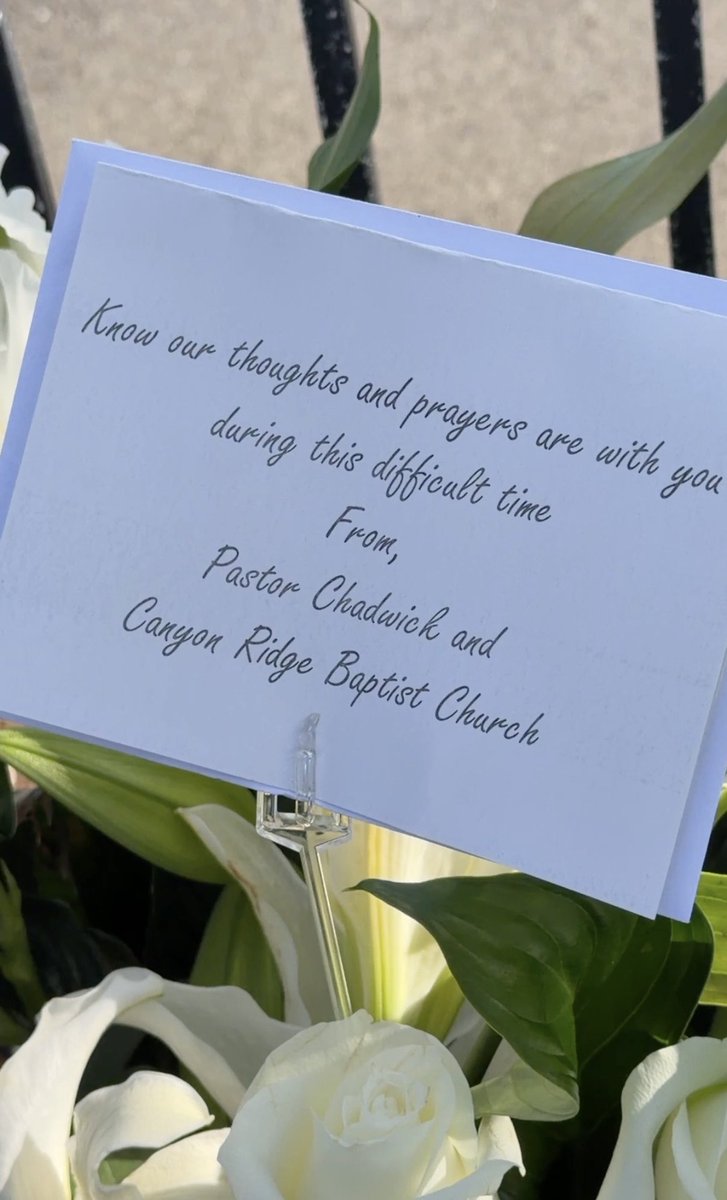 Know our thoughts and prayers are with you
during this difficult time
From,
Pastor Chadwick and
Canyon Ridge Baptist Church